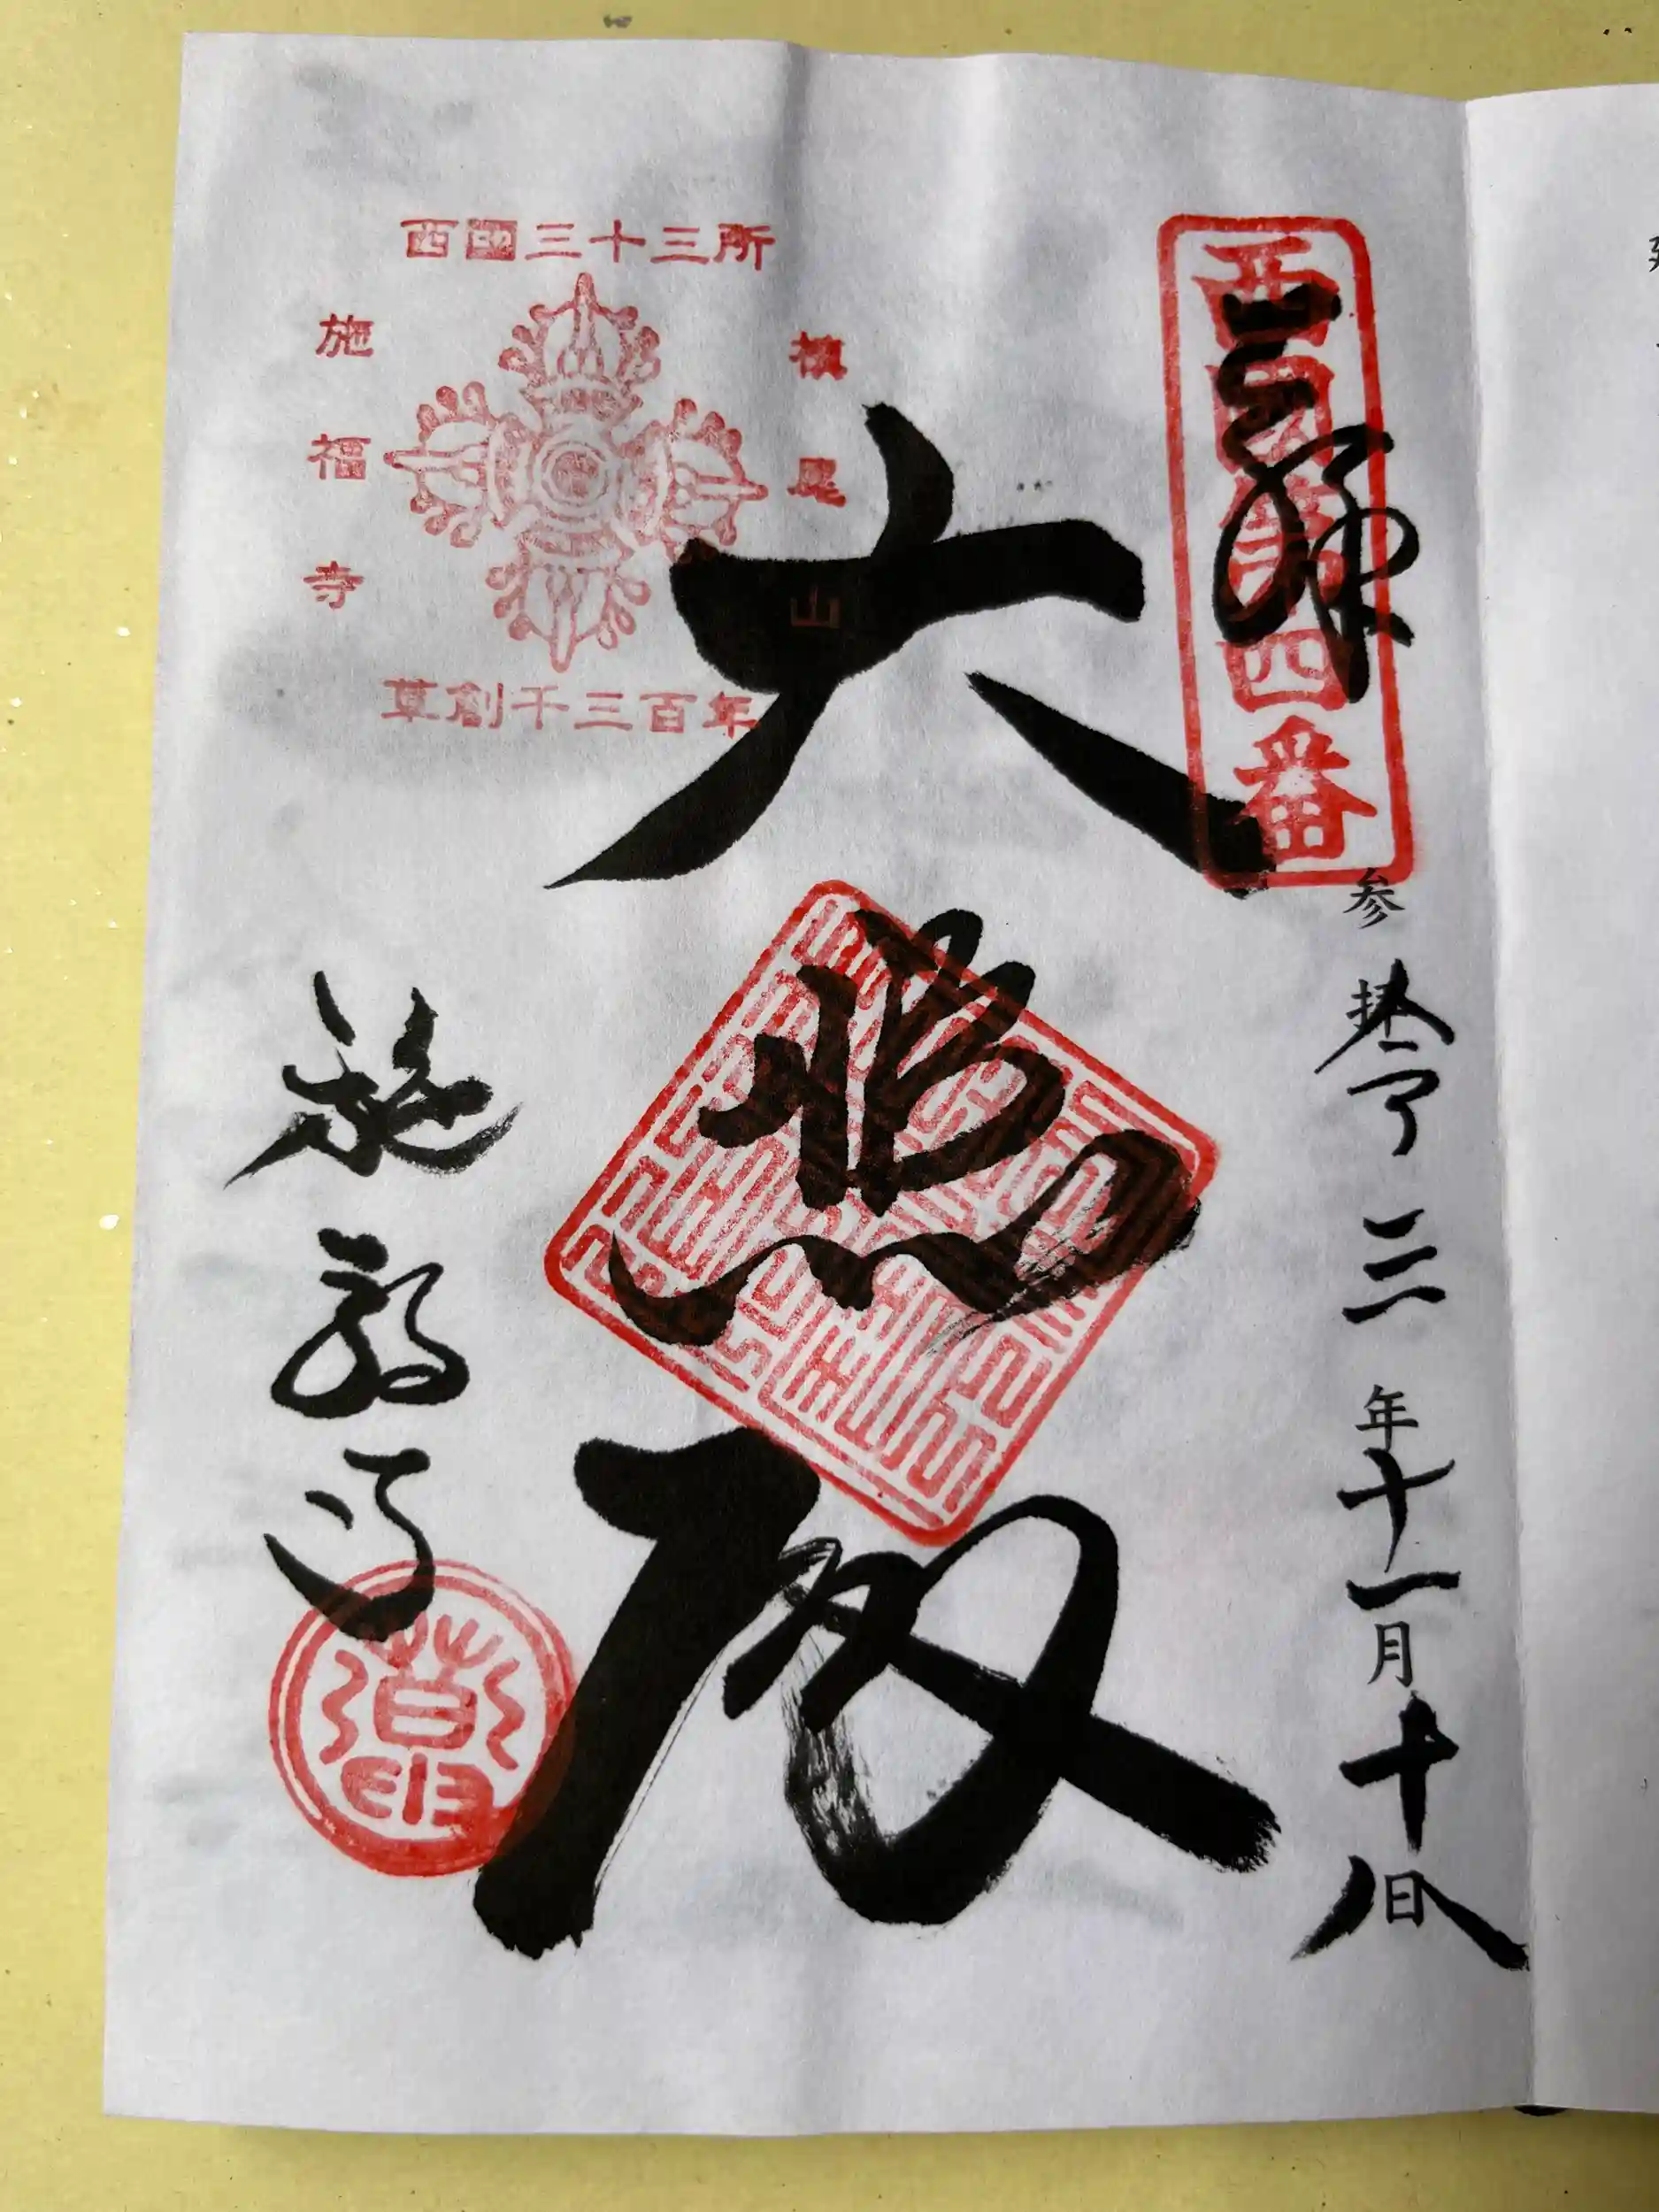 西国第四番
奉拝
参拝 令三年十一月十八日
大悲殿
施福寺
西国三十三所
槇尾山
施福寺
草創千三百年